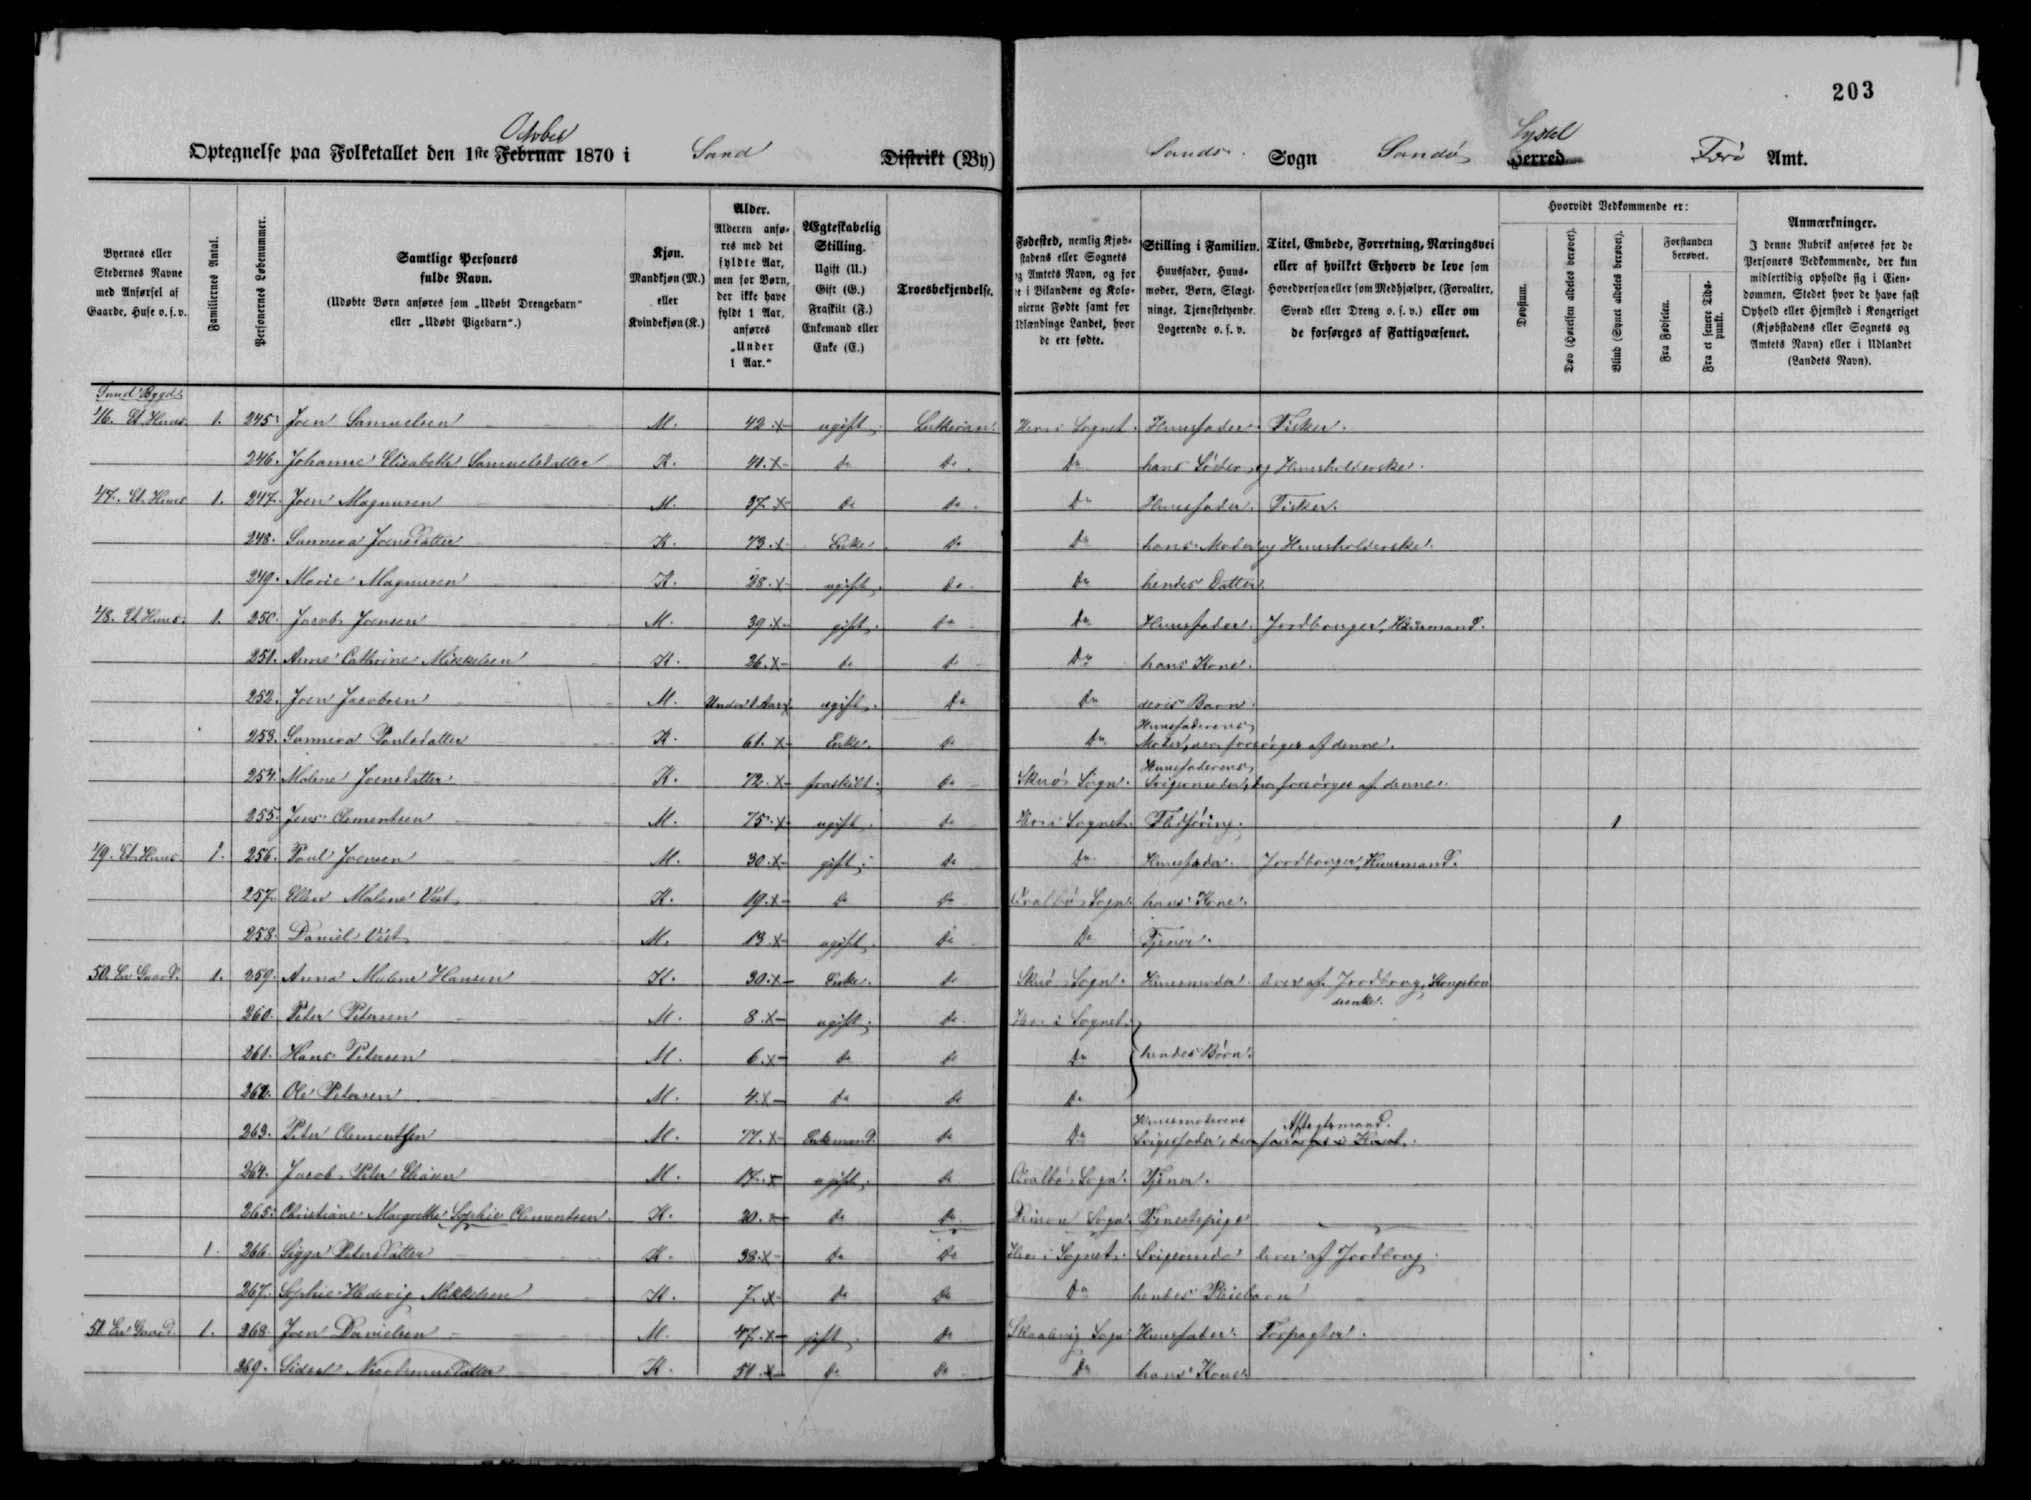 203
Optegnelse paa Folketallet den 1ste Februar October 1870 i Sand Distrikt (By)
Sands Sogn Sandö Herred Syssel Færö Amt.
Byernes eller Stedernes Navne med Anførsel af Gaarde, Huse o. s. v.
Familiernes Antal.
Personernes Løbenummer.
Samtlige Personers fulde Navn.
(Udøbte Børn anføres som „Udøbt Drengebarn“ eller „Udøbt Pigebarn“.)
Kjøn. Mandkjøn (M.) eller Kvindekjøn (K.)
Alder. Alderen anføres med det fyldte Aar, men for Børn, der ikke have fyldt 1 Aar, anføres „Under 1 Aar.“
Ægteskabelig Stilling. Ugift (U.) Gift (G.) Fraskilt (F.) Enkemand eller Enke (E.)
Troesbekjendelse.
Fødested, nemlig Kjøbstadens eller Sognets og Amtets Navn, og for de i Bilandene og Kolonierne Fødte samt for Udlændinge Landet, hvor de ere fødte.
Stilling i Familien. Huusfader, Huusmoder, Børn, Slægtninge, Tjenestetyende, Logerende o. s. v.
Titel, Embede, Forretning, Næringsvei eller af hvilket Erhverv de leve som Hovedperson eller som Medhjælper, (Forvalter, Svend eller Dreng o. s. v.) eller om de forsørges af Fattigvæsenet.
Hvorvidt Vedkommende er:
Døvstum.
Døv (Hørelsen aldeles berøvet).
Blind (Synet aldeles berøvet).
Forstanden berøvet.
Fra Fødselen.
Fra et senere Tidspunkt.
Anmærkninger.
I denne Rubrik anføres for de Personers Vedkommende, der kun midlertidig opholde sig i Eiendommen, Stedet hvor de have fast Ophold eller Hjemsted i Kongeriget (Kjøbstadens eller Sognets og Amtets Navn) eller i Udlandet (Landets Navn).
Sand Bygd
46. Et Huus. 1. 245. Joen Samuelsen M. 42 ugift Lutheran Her i Sognet. Huusfader. Fisker.
246. Johanne Elisabeth Samuelsdatter K. 41 do Do Do hans Söster og Huusholderske.
47. Et Huus 1. 247. Joen Magnusen M. 37 do do Do Huusfader. Fisker.
248. Sunneva Joensdatter K. 73 Enke do Do hans Moder og Huusholderske.
249. Marie Magnusen K. 28 ugift do Do hendes Datter.
48. Et Huus. 1. 250. Jacob Joensen M. 39 gift do Do Huusfader. Jordbruger, Huusmand.
251. Anne Cathrine Mikkelsen K. 26 do do Do hans Kone.
252. Joen Jacobsen M. Under 1 Aar ugift Do Do deres Barn
253. Sunneva Poulsdatter K. 61 Enke. do Do Huusfaderens Moder, der forsörges af denne.
254. Malene Joensdatter K. 72 fraskilt do Skuö Sogn. Huusfaderens Svigermoder, der forsörges af denne.
255. Jens Clementsen M. 75 ugift do Her i Sognet. 1
49. Et Huus 1. 256. Poul Joensen M. 30 gift do Do Huusfader. Jordbruger, Huusmand.
257. Ellen Malene Vest K. 19 do Do Qvalbö Sogn. hans Kone.
258. Daniel Vest M. 13 ugift Do Do Tjener.
50. En Gaard. 1. 259. Anna Malene Hansen K. 30 Enke. do Skuö Sogn. Huusmoder. lever af Jordbrug, Kongsbondeenke.
260. Peter Petersen M. 8 ugift do Her i Sognet.
261. Hans Petersen M. 6 do do Do hendes Börn.
262. Ole Petersen M. 4 do do Do
263. Peter Clementsen M. 77 Enkemand do Do Huusmoderens Svigerfader, der Aftægtsmand.
264. Jacob Peter M. 17 ugift do Qvalbö Sogn. Tjener.
265. Christiane Margrethe Sophie Clementsen. K. 20 do do Sogn. Tjenestepige
1. 266. Sigga Petersdatter K. 38 do Do Her i Sognet. lever af Jordbrug.
267. Sophie Hedevig Mikkelsen K. 7 do Do Do hendes Pleiebarn
51. En Gaard. 1. 268. Joen Danielsen M. 47 gift Do Skaalevig Sogn Huusfader. Forpagter.
269. K. 51 do Do Do hans Kone